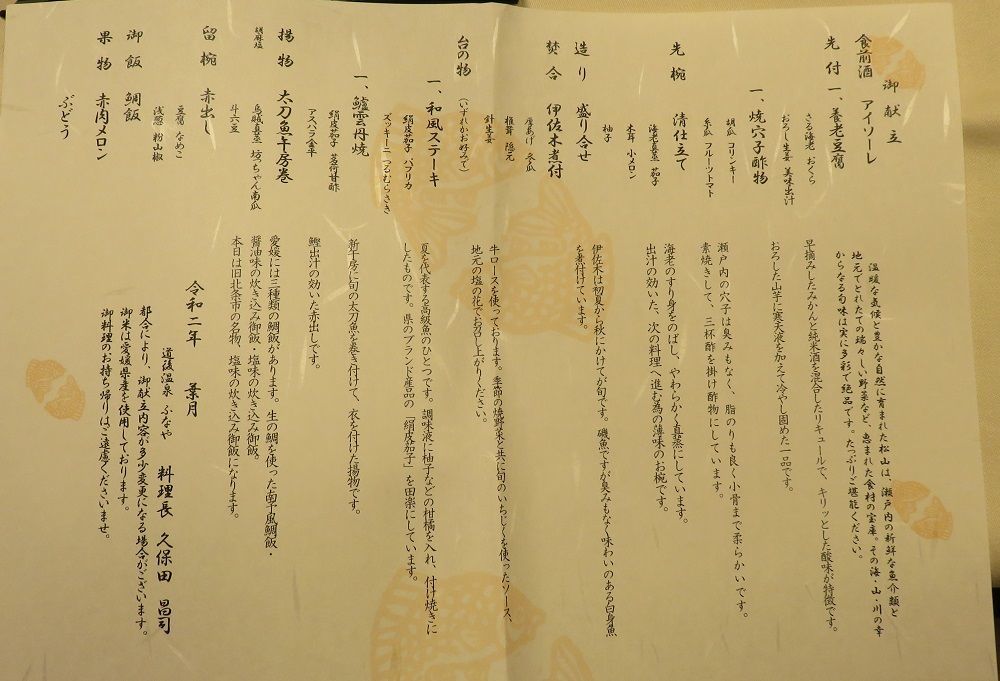 御献立
食前酒 アイソーレ
先付 一、養老豆腐
さる海老 おくら
おろし生姜 美味出汁
一、焼穴子酢物
胡瓜 コリンキー
糸瓜 フルーツトマト
先椀 清仕立て
海老真蒸 茄子
木耳 小メロン
柚子
造り 盛り合せ
焚合 伊佐木煮付
厚あげ 冬瓜
椎茸 隠元
針生姜
台の物 (いずれかお好みで)
一、和風ステーキ
絹皮茄子 パプリカ
ズッキーニ つるむらさき
一、鱸雲丹焼
絹皮茄子 茗荷甘酢
アスパラ金平
揚物 太刀魚午房巻
烏賊真蒸 坊っちゃん南瓜
斗六豆
胡麻塩
留椀 赤出し
豆腐 なめこ
浅葱 粉山椒
御飯 鯛飯
果物 赤肉メロン
ぶどう
温暖な気候と豊かな自然に育まれた松山は、瀬戸内の新鮮な魚介類と
地元でとれたての瑞々しい野菜など、恵まれた食材の宝庫。その海・山・川の幸
からなる旬味は実に多彩で絶品です。たっぷりご堪能ください。
早摘みしたみかんと純米酒を混合したリキュールで、キリッとした酸味が特徴です。
おろした山芋に寒天液を加えて冷やし固めた一品です。
瀬戸内の穴子は臭みもなく、脂のりも良く小骨まで柔らかいです。
素焼きして、三杯酢を掛け酢物にしています。
海老のすり身をのばし、やわらかく真蒸にしています。
出汁の効いた、次の料理へ進む為の薄味のお椀です。
伊佐木は初夏から秋にかけてが旬です。磯魚ですが臭みもなく味わいのある白身魚
を煮付けています。
牛ロースを使っております。季節の焼野菜と共に旬のいちじくを使ったソース、
地元の塩の花でお召し上がりください。
夏を代表する高級魚のひとつです。調味液に柚子などの柑橘を入れ、付け焼きに
したものです。県のブランド産品の「絹皮茄子」を田楽にしています。
新午房に旬の太刀魚を巻き付けて、衣を付けた揚物です。
鰹出汁の効いた赤出しです。
愛媛には三種類の鯛飯があります。生の鯛を使った南予風鯛飯・
醤油味の炊き込み御飯・塩味の炊き込み御飯。
本日は旧北条市の名物、塩味の炊き込み御飯になります。
令和二年 葉月
道後温泉 ふなや 料理長 久保田 昌司
都合により、御献立内容が多少変更になる場合がございます。
御米は愛媛県産を使用しております。
御料理のお持ち帰りはご遠慮くださいませ。